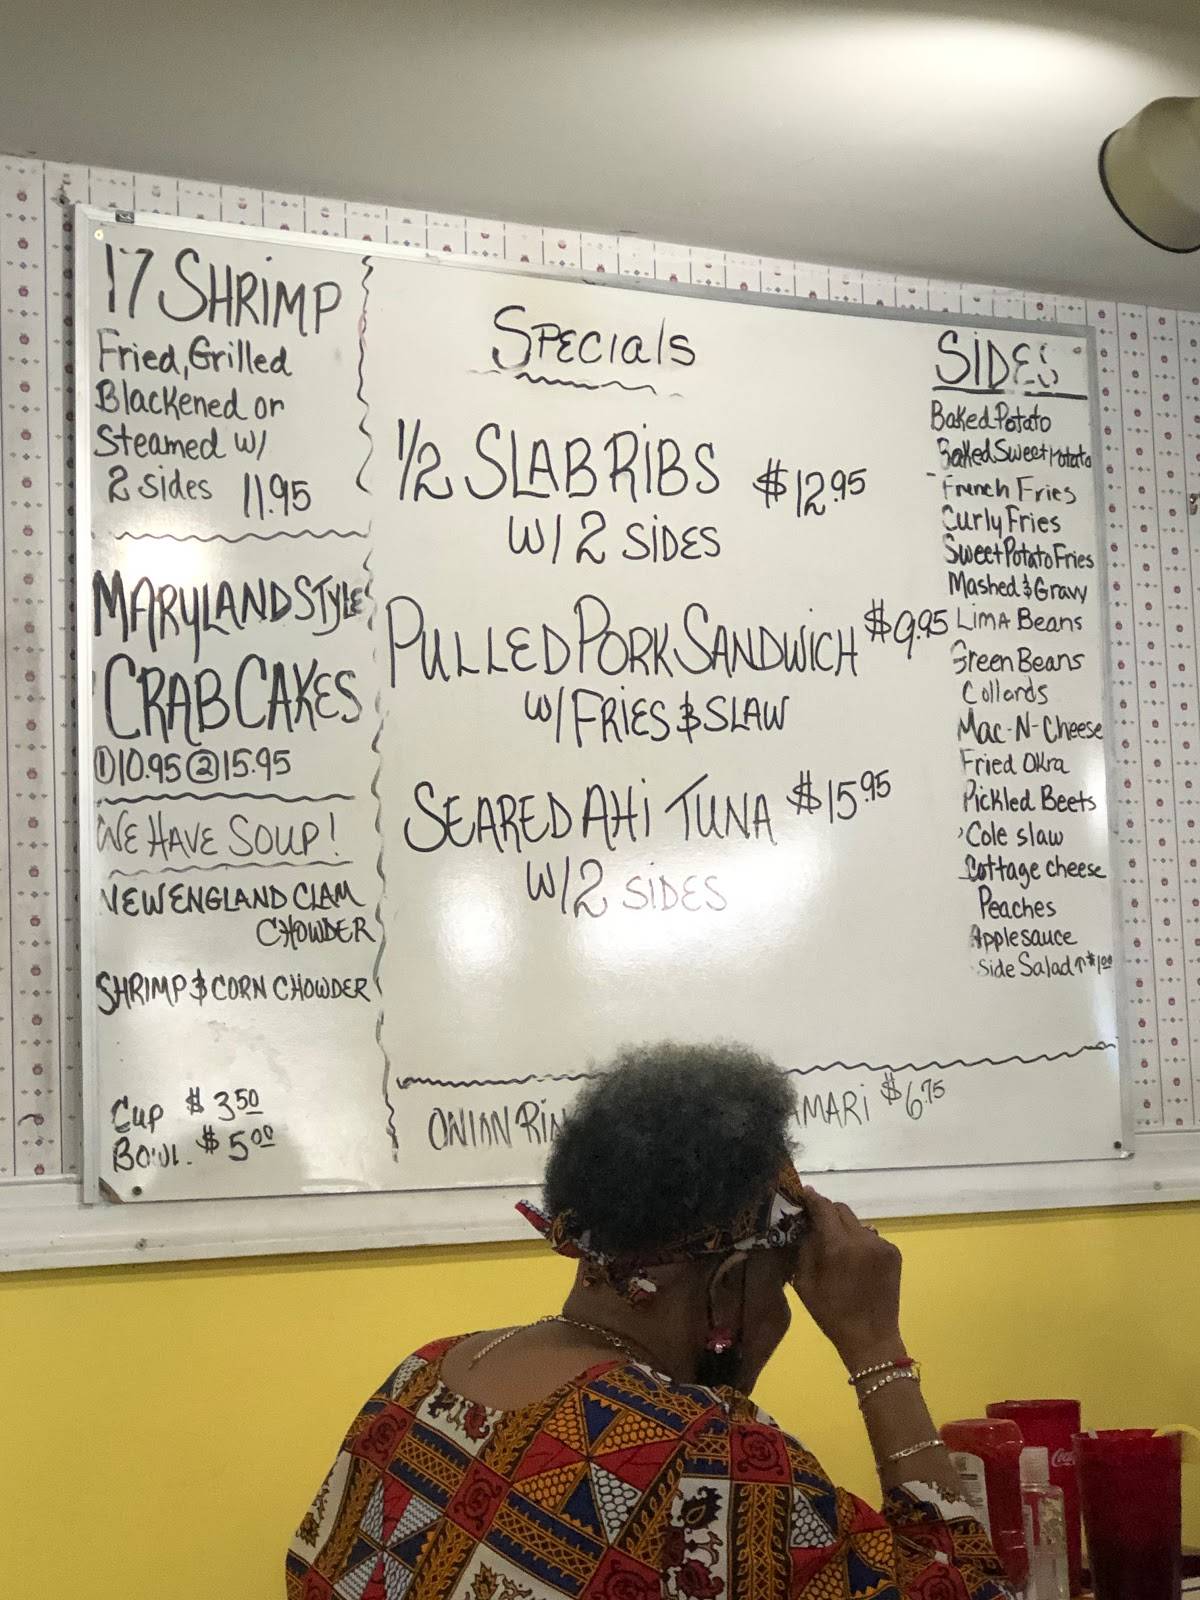 17 SHRIMP
Fried, Grilled
Blackened or
Steamed w/
2 sides 11.95
MARYLAND STYLE
CRAB CAKES
① 10.95 ② 15.95
WE HAVE SOUP!
NEW ENGLAND CLAM
CHOWDER
SHRIMP & CORN CHOWDER
Cup $3.50
Bowl. $5.00
Specials
1/2 SLAB RIBS $12.95
W/ 2 SIDES
PULLED PORK SANDWICH $9.95
W/ FRIES & SLAW
SEARED AHI TUNA $15.95
W/ 2 SIDES
ONION RIN
AMARI $6.75
SIDES
Baked Potato
Baked Sweet Potato
French Fries
Curly Fries
Sweet Potato Fries
Mashed & Gravy
Lima Beans
Green Beans
Collards
Mac-N-Cheese
Fried Okra
Pickled Beets
Cole slaw
Cottage cheese
Peaches
Applesauce
Side Salad ↑ $1.00